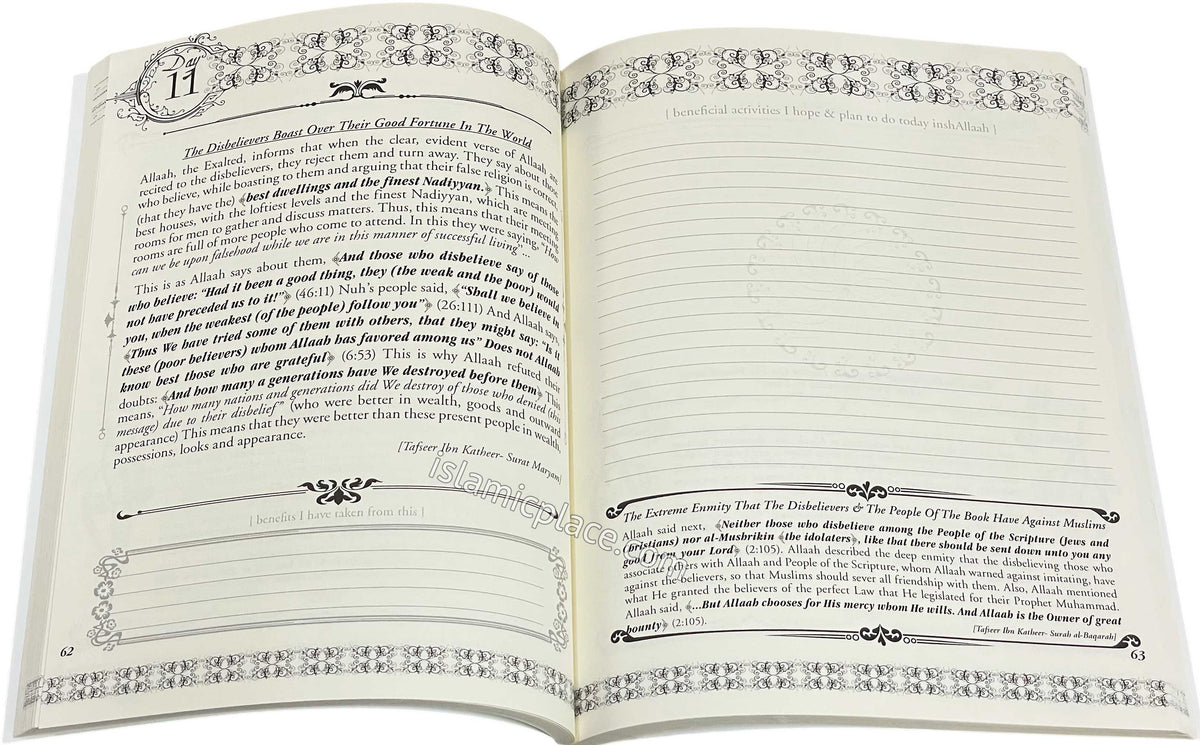 Day
11
The Disbelievers Boast Over Their Good Fortune In The World
Allaah, the Exalted, informs that when the clear, evident verse of Allaah are
recited to the disbelievers, they reject them and turn away. They say about those
who believe, while boasting to them and arguing that their false religion is correct
(that they have the) ﴾best dwellings and the finest Nadiyyan.﴿ This means the
best houses, with the loftiest levels and the finest Nadiyyan, which are meeting
rooms for men to gather and discuss matters. Thus, this means that their meeting
rooms are full of more people who come to attend. In this they were saying, "How
can we be upon falsehood while we are in this manner of successful living"...
This is as Allaah says about them, ﴾And those who disbelieve say of those
who believe: "Had it been a good thing, they (the weak and the poor) would
not have preceded us to it!"﴿ (46:11) Nuh's people said, ﴾"Shall we believe in
you, when the weakest (of the people) follow you"﴿ (26:111) And Allaah says,
﴾Thus We have tried some of them with others, that they might say: "Is it
these (poor believers) whom Allaah has favored among us" Does not Allaah
know best those who are grateful﴿ (6:53) This is why Allaah refuted their
doubts: ﴾And how many a generations have We destroyed before them﴿ This
means, "How many nations and generations did We destroy of those who denied (this
message) due to their disbelief" (who were better in wealth, goods and outward
appearance) This means that they were better than these present people in wealth,
possessions, looks and appearance.
[Tafseer Ibn Katheer- Surat Maryam]
[ benefits I have taken from this ]
62
[ beneficial activities I hope & plan to do today inshAllaah ]
The Extreme Enmity That The Disbelievers & The People Of The Book Have Against Muslims
Allaah said next, ﴾Neither those who disbelieve among the People of the Scripture (Jews and
Christians) nor al-Mushrikin ﴾the idolaters﴿, like that there should be sent down unto you any
good from your Lord﴿ (2:105). Allaah described the deep enmity that the disbelieving those who
associate others with Allaah and People of the Scripture, whom Allaah warned against imitating, have
against the believers, so that Muslims should sever all friendship with them. Also, Allaah mentioned
what He granted the believers of the perfect Law that He legislated for their Prophet Muhammad.
Allaah said, ﴾...But Allaah chooses for His mercy whom He wills. And Allaah is the Owner of great
bounty﴿ (2:105).
[Tafseer Ibn Katheer- Surah al-Baqarah]
63
islamicplace.com